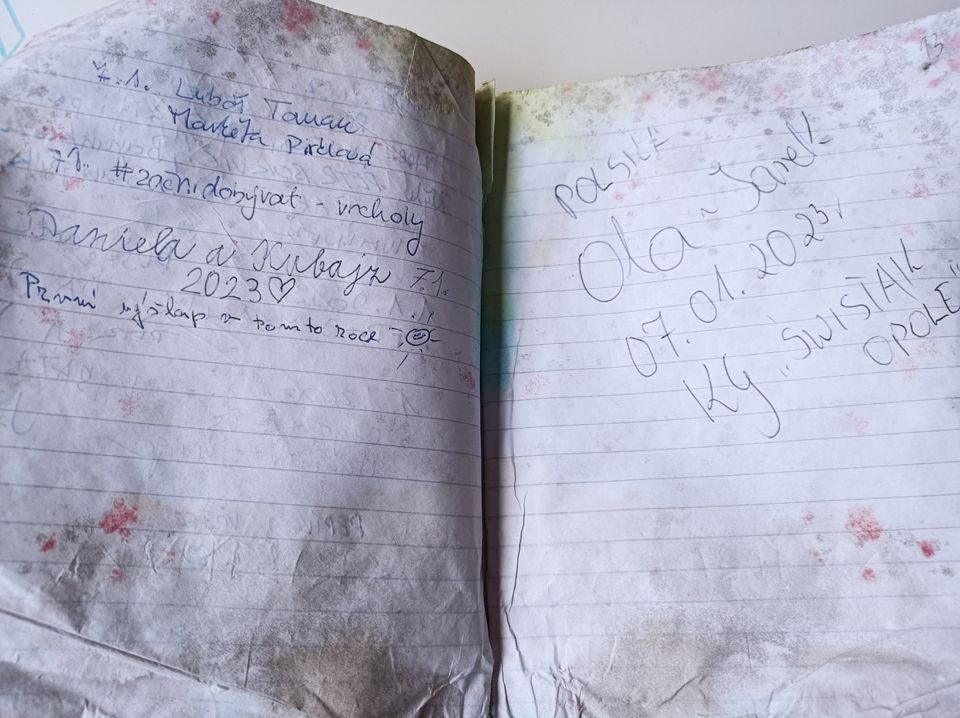 7.1. Luboš Toman
Markéta Pirklová
7.1. #začnidobývat - vrcholy
Daniela a Kubajz 7.1.
2023♡
První výšlap v tomto roce
POLSKA
Ola ~ Janek
07.01.2023r
KG „ŚWISTAK"
OPOLE